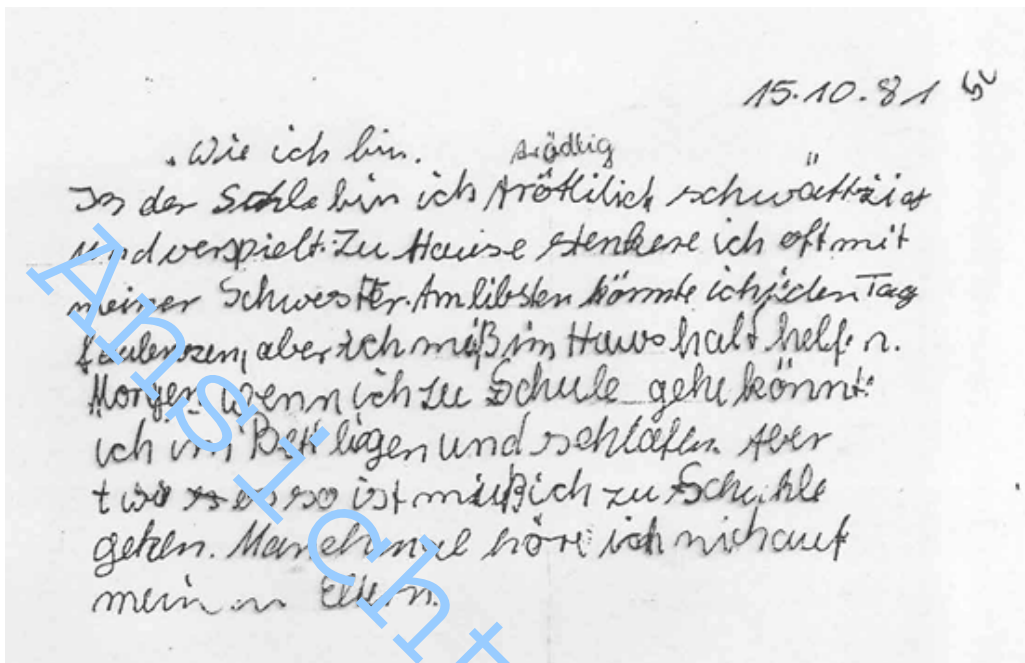 15.10.81
Wie ich bin.
In der Schle bin ich schwättzig
und verspielt. Zu Hause stenkere ich oft mit
meiner Schwester. Am libsten könnte ich jeden Tag
faulenzen, aber ich muß im Haushalt helfen.
Morgen wenn ich zu Schule gehe könnte
ich im Bett ligen und schlafen. Aber
so ist muß ich zu Schuhle
gehen. Manchmal höre ich nich auf
meinen Eltern.
Ansicht